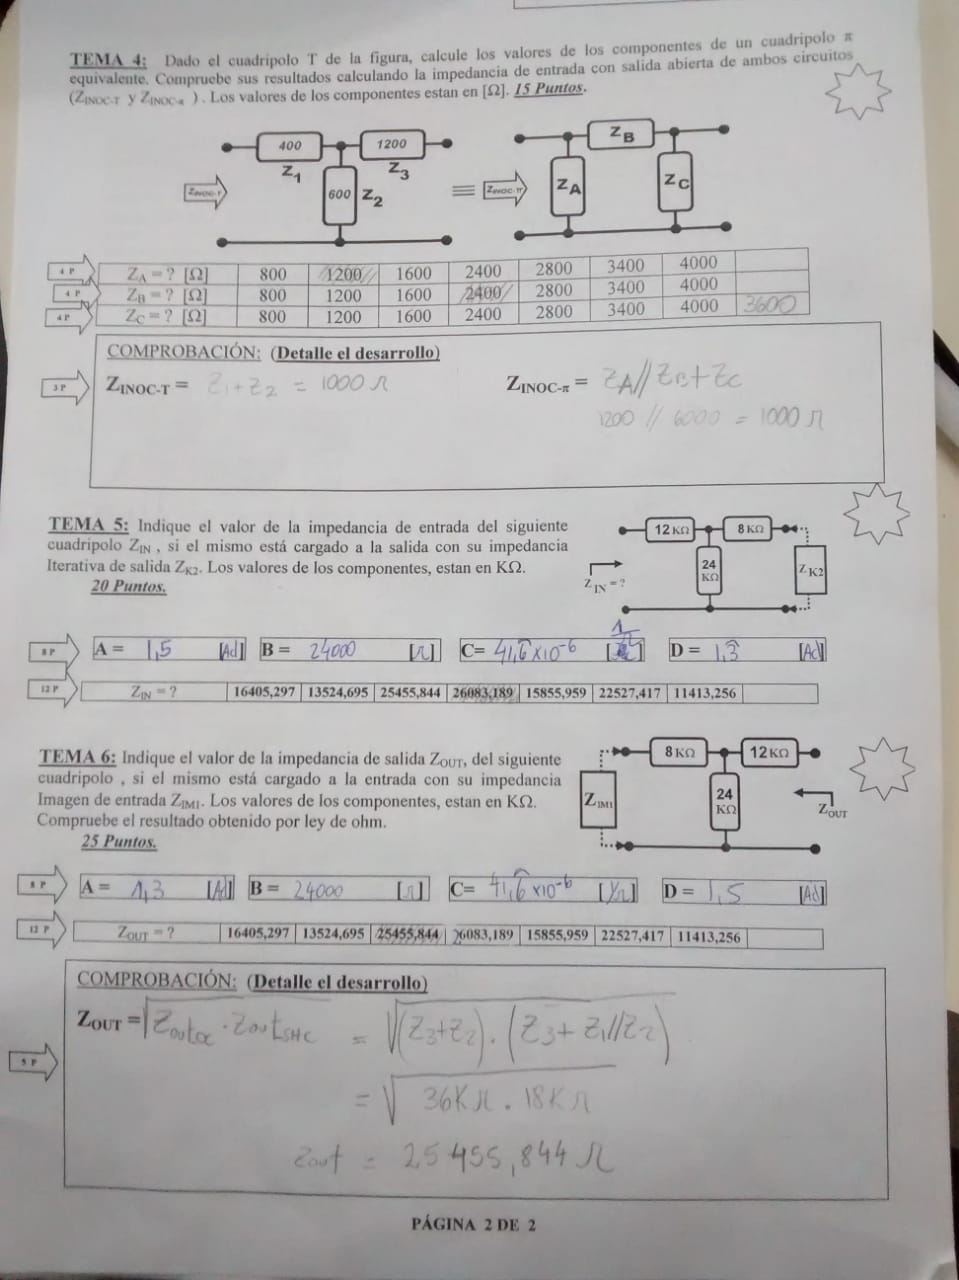 TEMA 4: Dado el cuadripolo T de la figura, calcule los valores de los componentes de un cuadripolo π
equivalente. Compruebe sus resultados calculando la impedancia de entrada con salida abierta de ambos circuitos
(ZINOC-T y ZINOC-π ) . Los valores de los componentes estan en [Ω]. 15 Puntos.
400 1200 ZB
Z1 Z3
ZINOC-T 600 Z2 ≡ ZINOC-π ZA ZC
4 P ZA = ? [Ω] 800 1200 1600 2400 2800 3400 4000
4 P ZB = ? [Ω] 800 1200 1600 2400 2800 3400 4000
4 P ZC = ? [Ω] 800 1200 1600 2400 2800 3400 4000 3600
COMPROBACIÓN: (Detalle el desarrollo)
3 P ZINOC-T = Z1+Z2 = 1000 Ω ZINOC-π = ZA//ZB+ZC
1200 // 6000 = 1000 Ω
TEMA 5: Indique el valor de la impedancia de entrada del siguiente
cuadripolo ZIN , si el mismo está cargado a la salida con su impedancia
Iterativa de salida ZK2. Los valores de los componentes, estan en KΩ.
20 Puntos.
12 KΩ 8 KΩ
24
KΩ
ZIN =? ZK2
8 P A = 1,5 [Ad] B = 24000 [Ω] C= 41,6̂x10-6 [1/Ω] D = 1,3̂ [Ad]
12 P ZIN = ? 16405,297 13524,695 25455,844 26083,189 15855,959 22527,417 11413,256
TEMA 6: Indique el valor de la impedancia de salida ZOUT, del siguiente
cuadripolo , si el mismo está cargado a la entrada con su impedancia
Imagen de entrada ZIM1. Los valores de los componentes, estan en KΩ.
Compruebe el resultado obtenido por ley de ohm.
25 Puntos.
8 KΩ 12KΩ
ZIM1 24
KΩ
ZOUT
8 P A = 1,3 [Ad] B = 24000 [Ω] C= 41,6̂x10-6 [1/Ω] D = 1,5 [Ad]
12 P ZOUT = ? 16405,297 13524,695 25455,844 26083,189 15855,959 22527,417 11413,256
COMPROBACIÓN: (Detalle el desarrollo)
ZOUT = √ZoutOC . ZoutSHC = √(Z3+Z2) . (Z3+ Z1//Z2)
5 P
= √36KΩ . 18KΩ
Zout = 25455,844 Ω
PÁGINA 2 DE 2